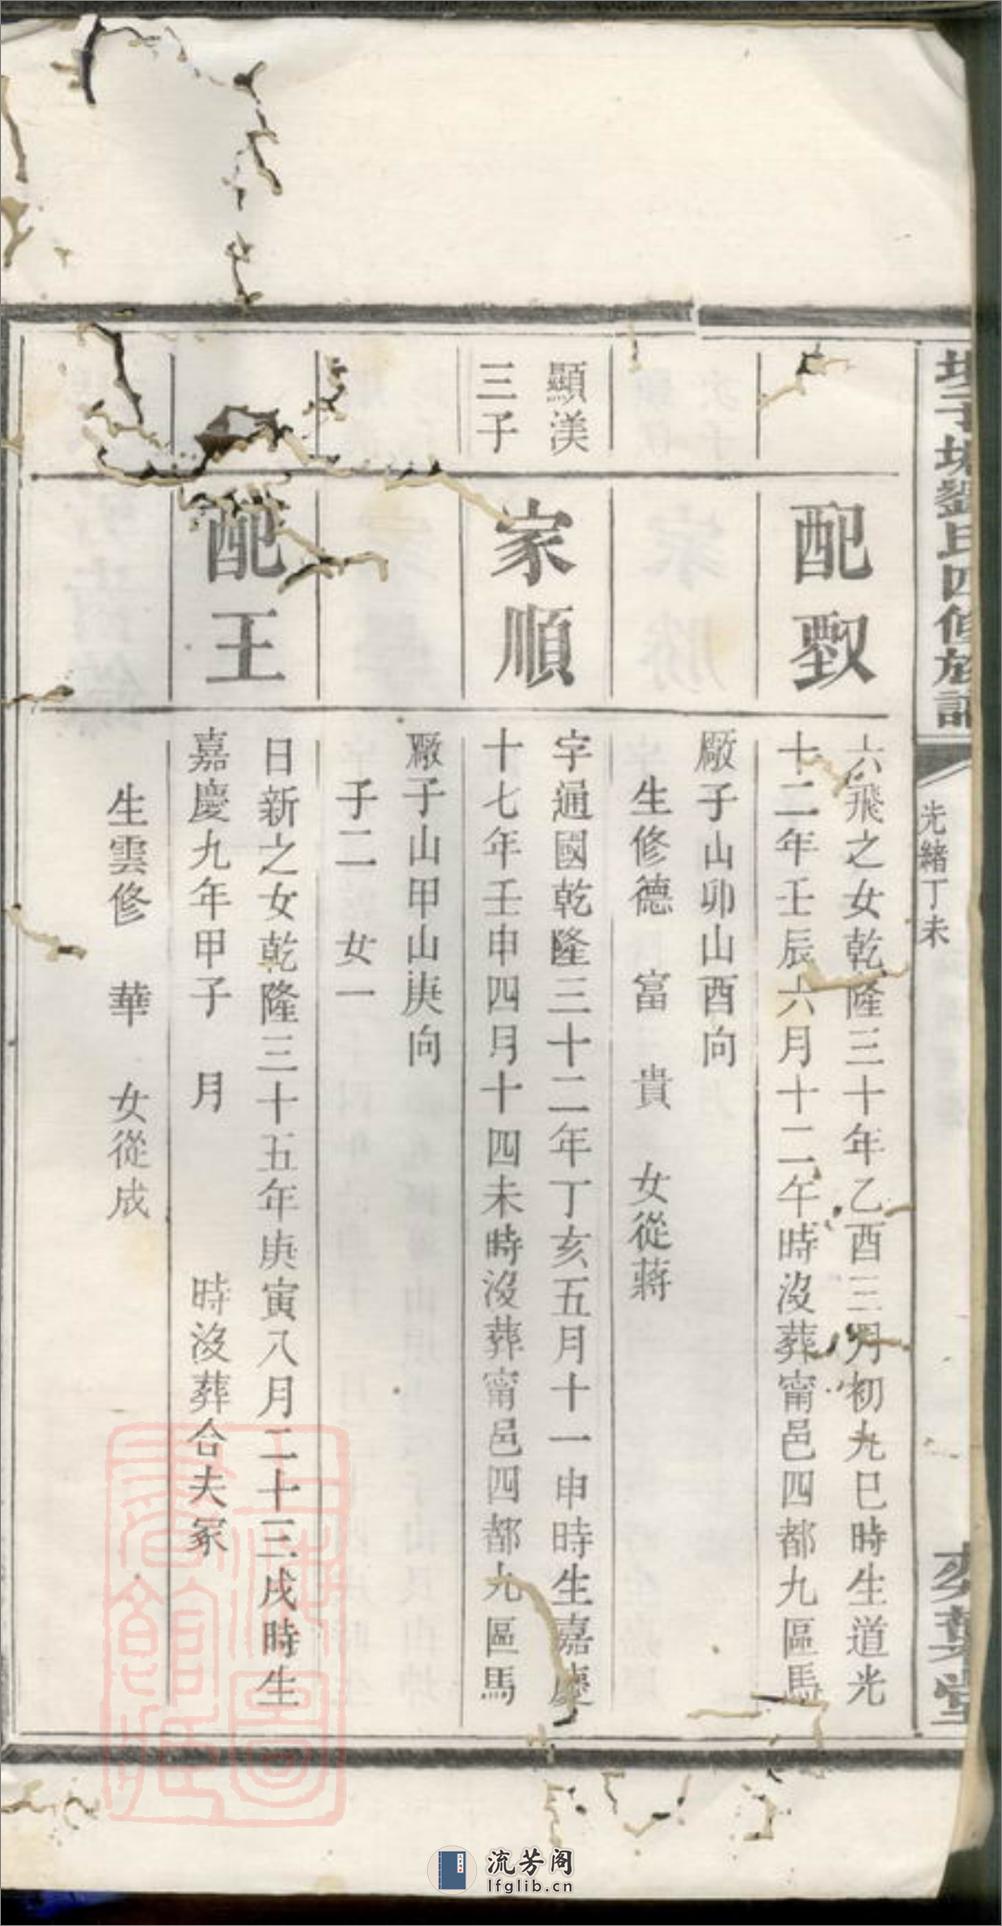 劉氏四修族譜
光緒丁未
配
六飛之女乾隆三十年乙酉三月初九巳時生道光
十二年壬辰六月十二午時沒葬甯邑四都九區馬
廠子山卯山酉向
生修德 富 貴 女從蔣
顯渼
三子
家順
字通國乾隆三十二年丁亥五月十一申時生嘉慶
十七年壬申四月十四未時沒葬甯邑四都九區馬
廠子山甲山庚向
子二 女一
配王
日新之女乾隆三十五年庚寅八月二十三戌時生
嘉慶九年甲子 月 時沒葬合夫冢
生雲修 華 女從成
上海圖書館藏
流芳阁
lfglib.cn